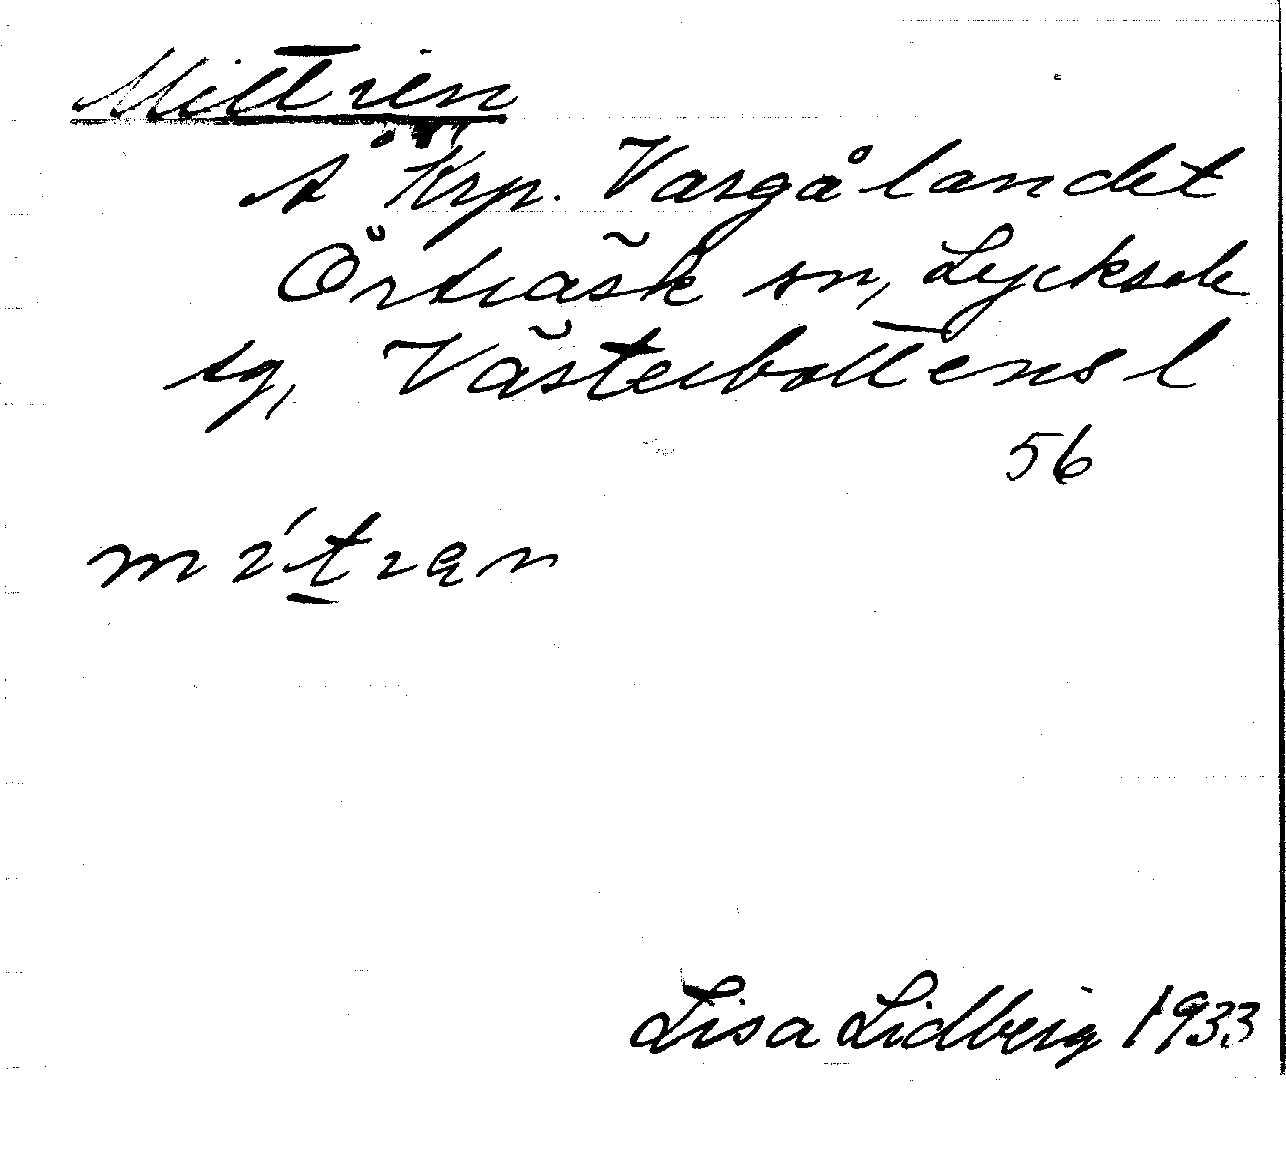 Mittrien
Å Krp. Vargålandet
Örträsk sn, Lycksele
tg, Västerbottens l
56
Lisa Lidberg 1933